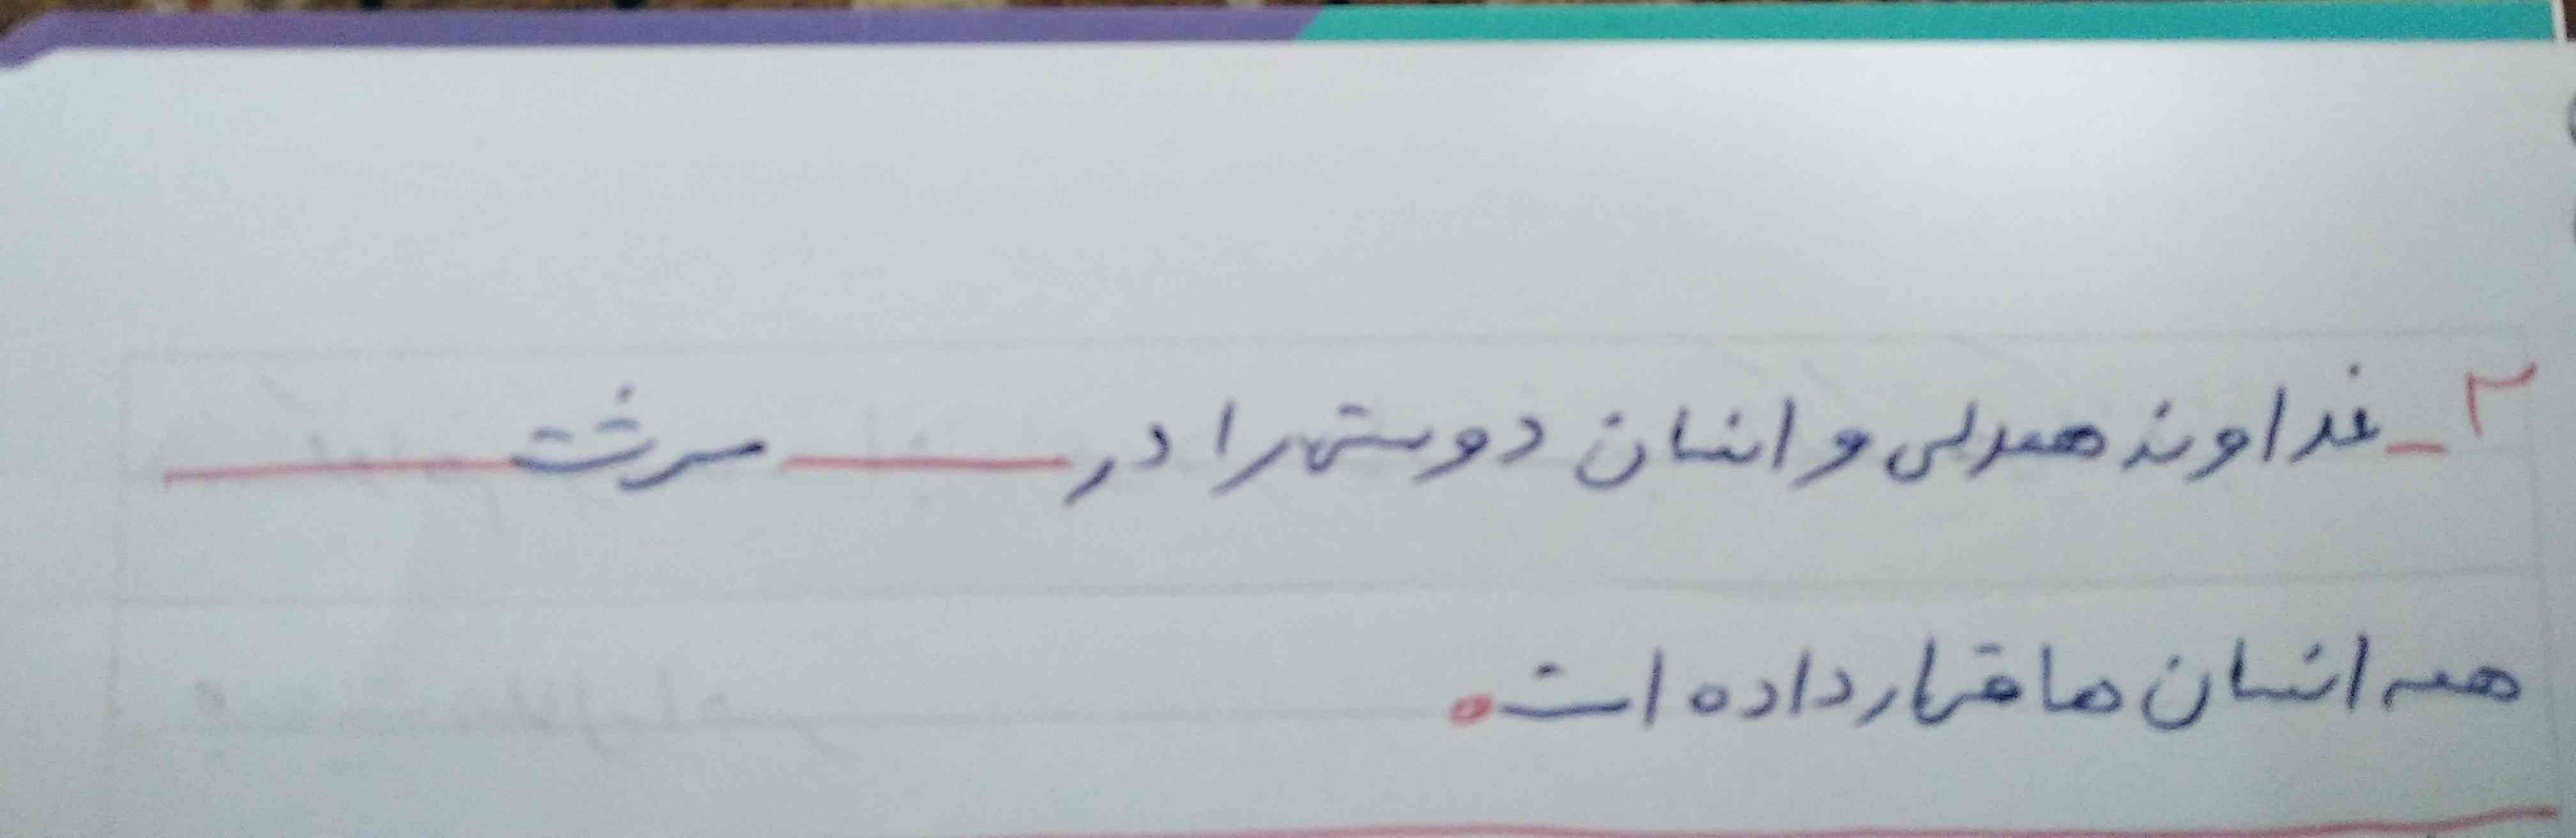 ۲_ خداوند همدلی و انسان دوستی را در ____ سرشت ____
همه انسان ها قرار داده است.